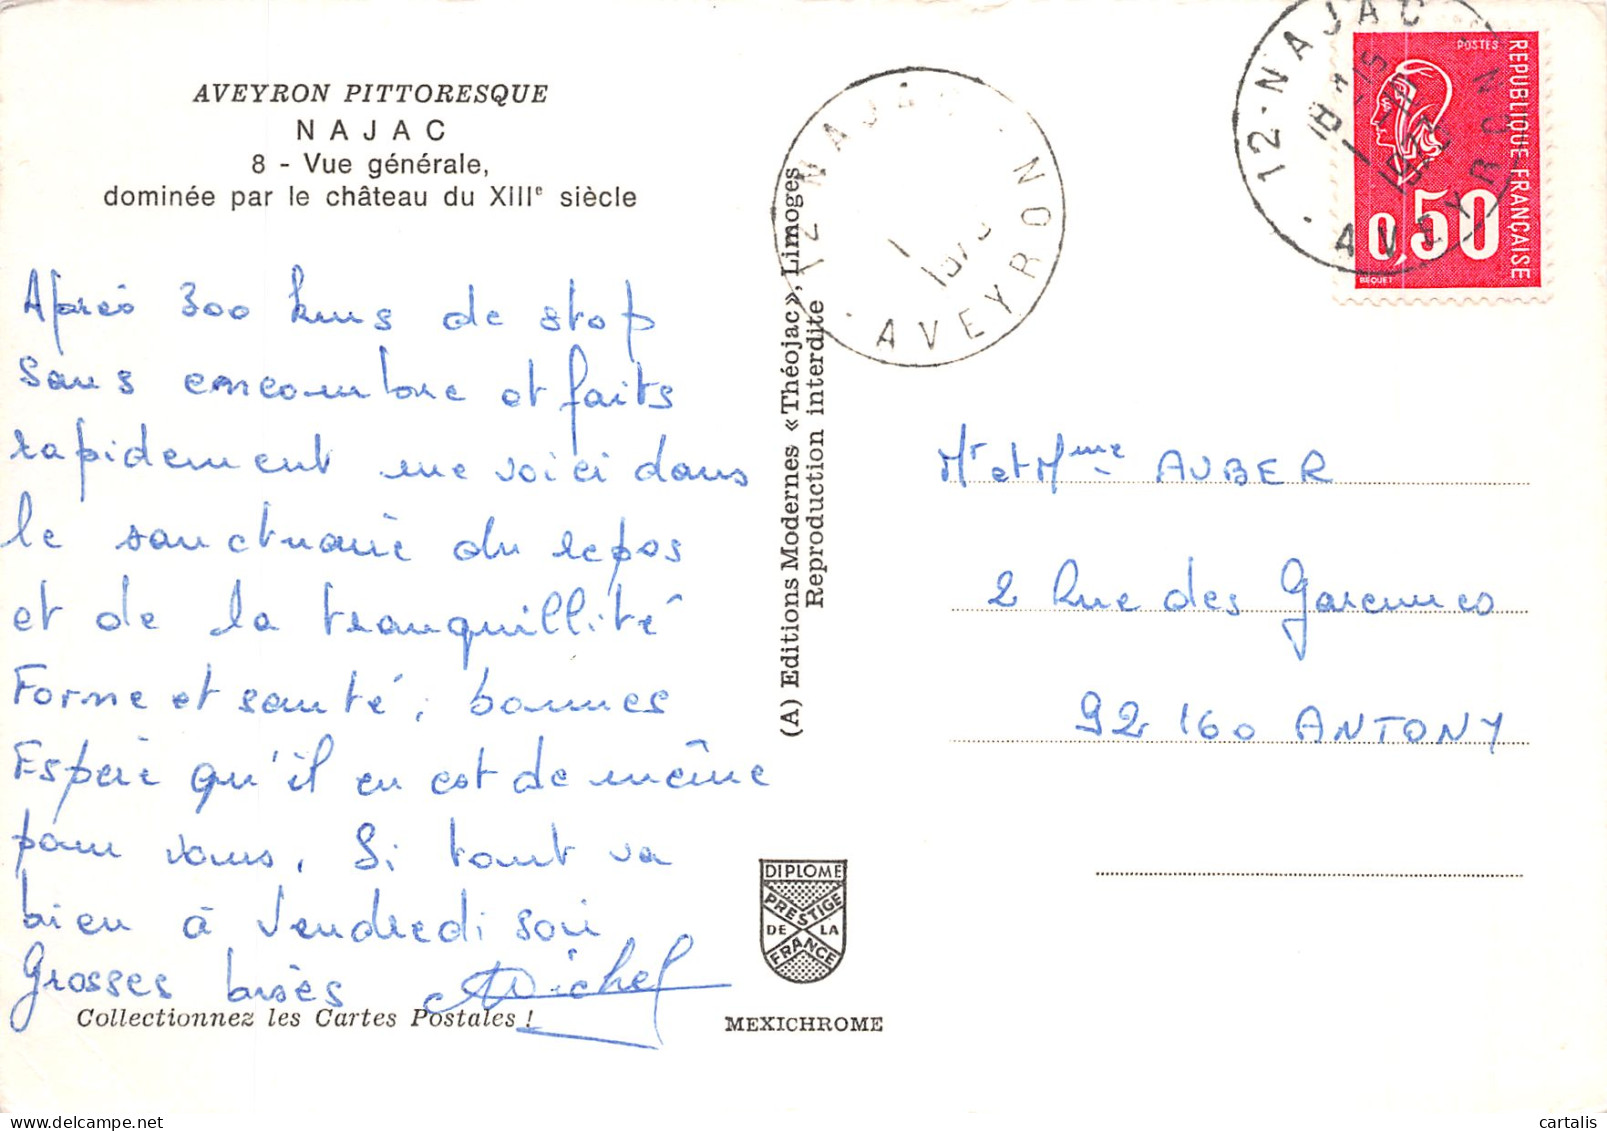 AVEYRON PITTORESQUE
NAJAC
8 - Vue générale,
dominée par le château du XIIIe siècle
Après 300 kms de stop
sans encombre et faits
rapidement me voici dans
le sanctuaire du repos
et de la tranquillité
Forme et santé, bonnes
Espère qu'il en est de même
pour vous. Si tout va
bien à Vendredi soir
Grosses bises Michel
Collectionnez les Cartes Postales !
(A) Editions Modernes «Théojac», Limoges
Reproduction interdite
DIPLOME
PRESTIGE
DE LA
FRANCE
MEXICHROME
12 NAJAC
AVEYRON
12-NAJAC
AVEYRON
POSTES
REPUBLIQUE-FRANÇAISE
0,50
BEQUET
Mr et Mme AUBER
2 Rue des Garennes
92 160 ANTONY
cartalis | delcampe.net